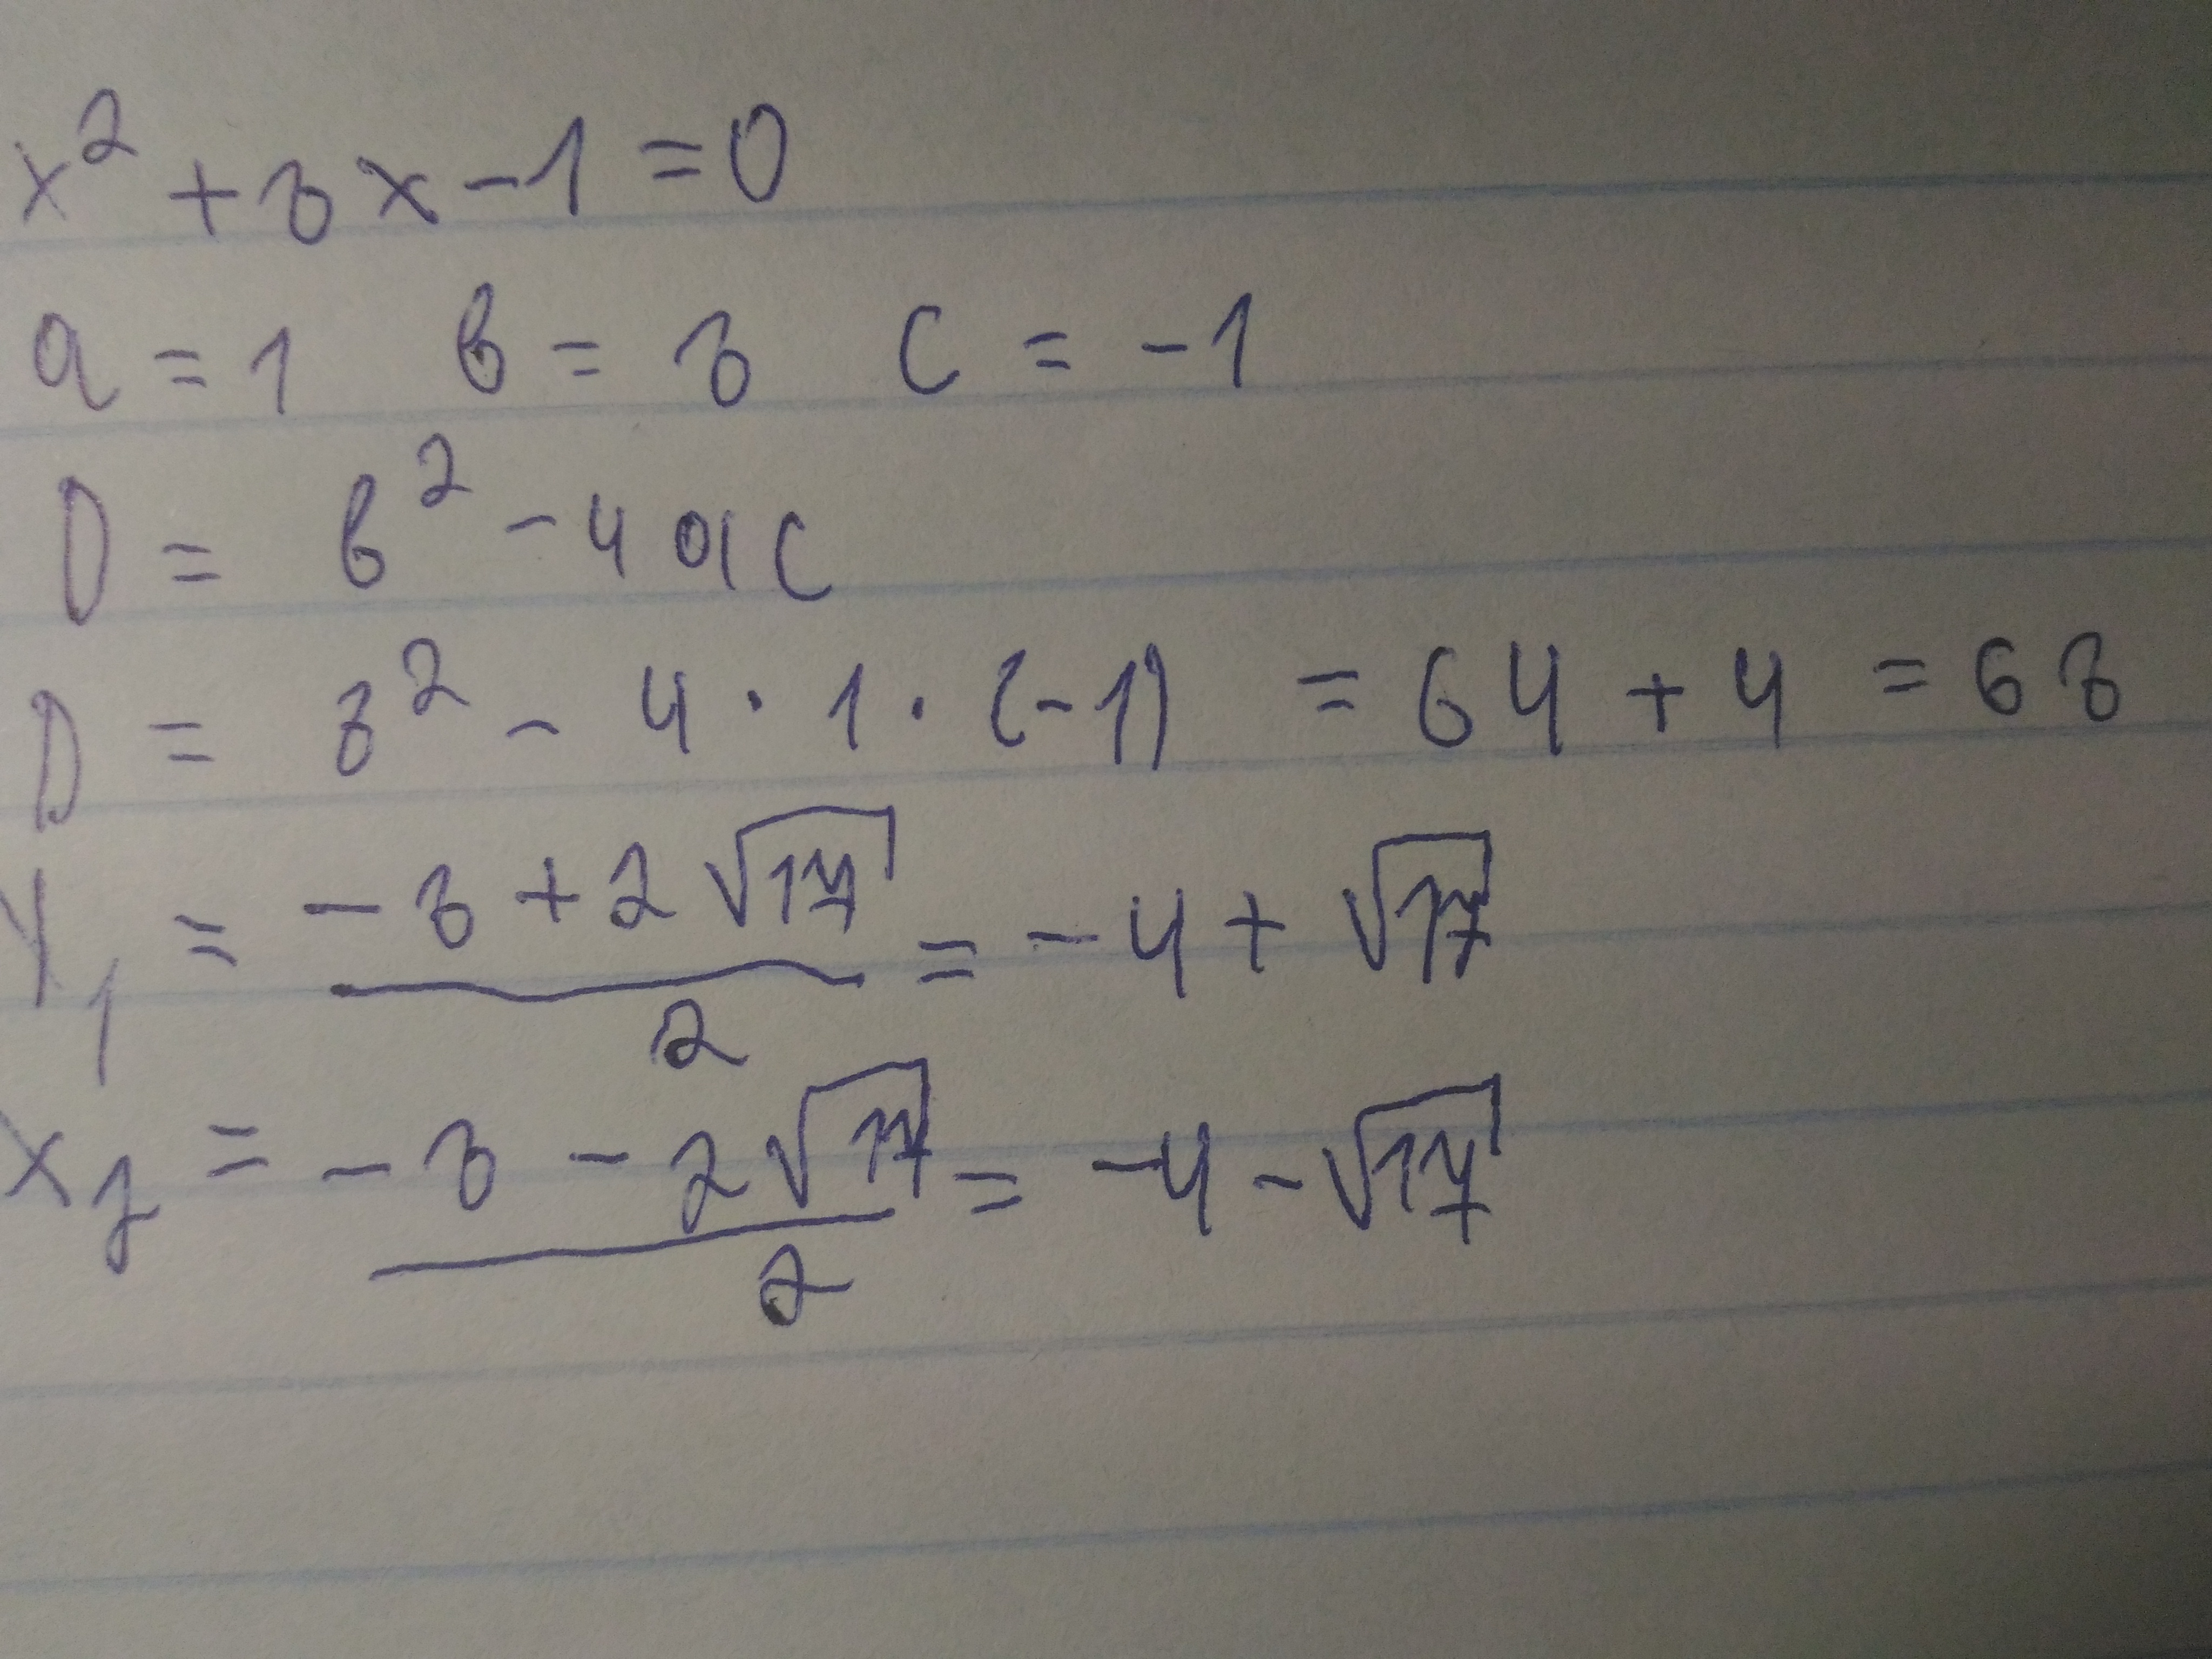 x² + 8x - 1 = 0
a = 1 b = 8 c = -1
D = b² - 4ac
D = 8² - 4 · 1 · (-1) = 64 + 4 = 68
x₁ = (-8 + 2√17)/2 = -4 + √17
x₂ = (-8 - 2√17)/2 = -4 - √17